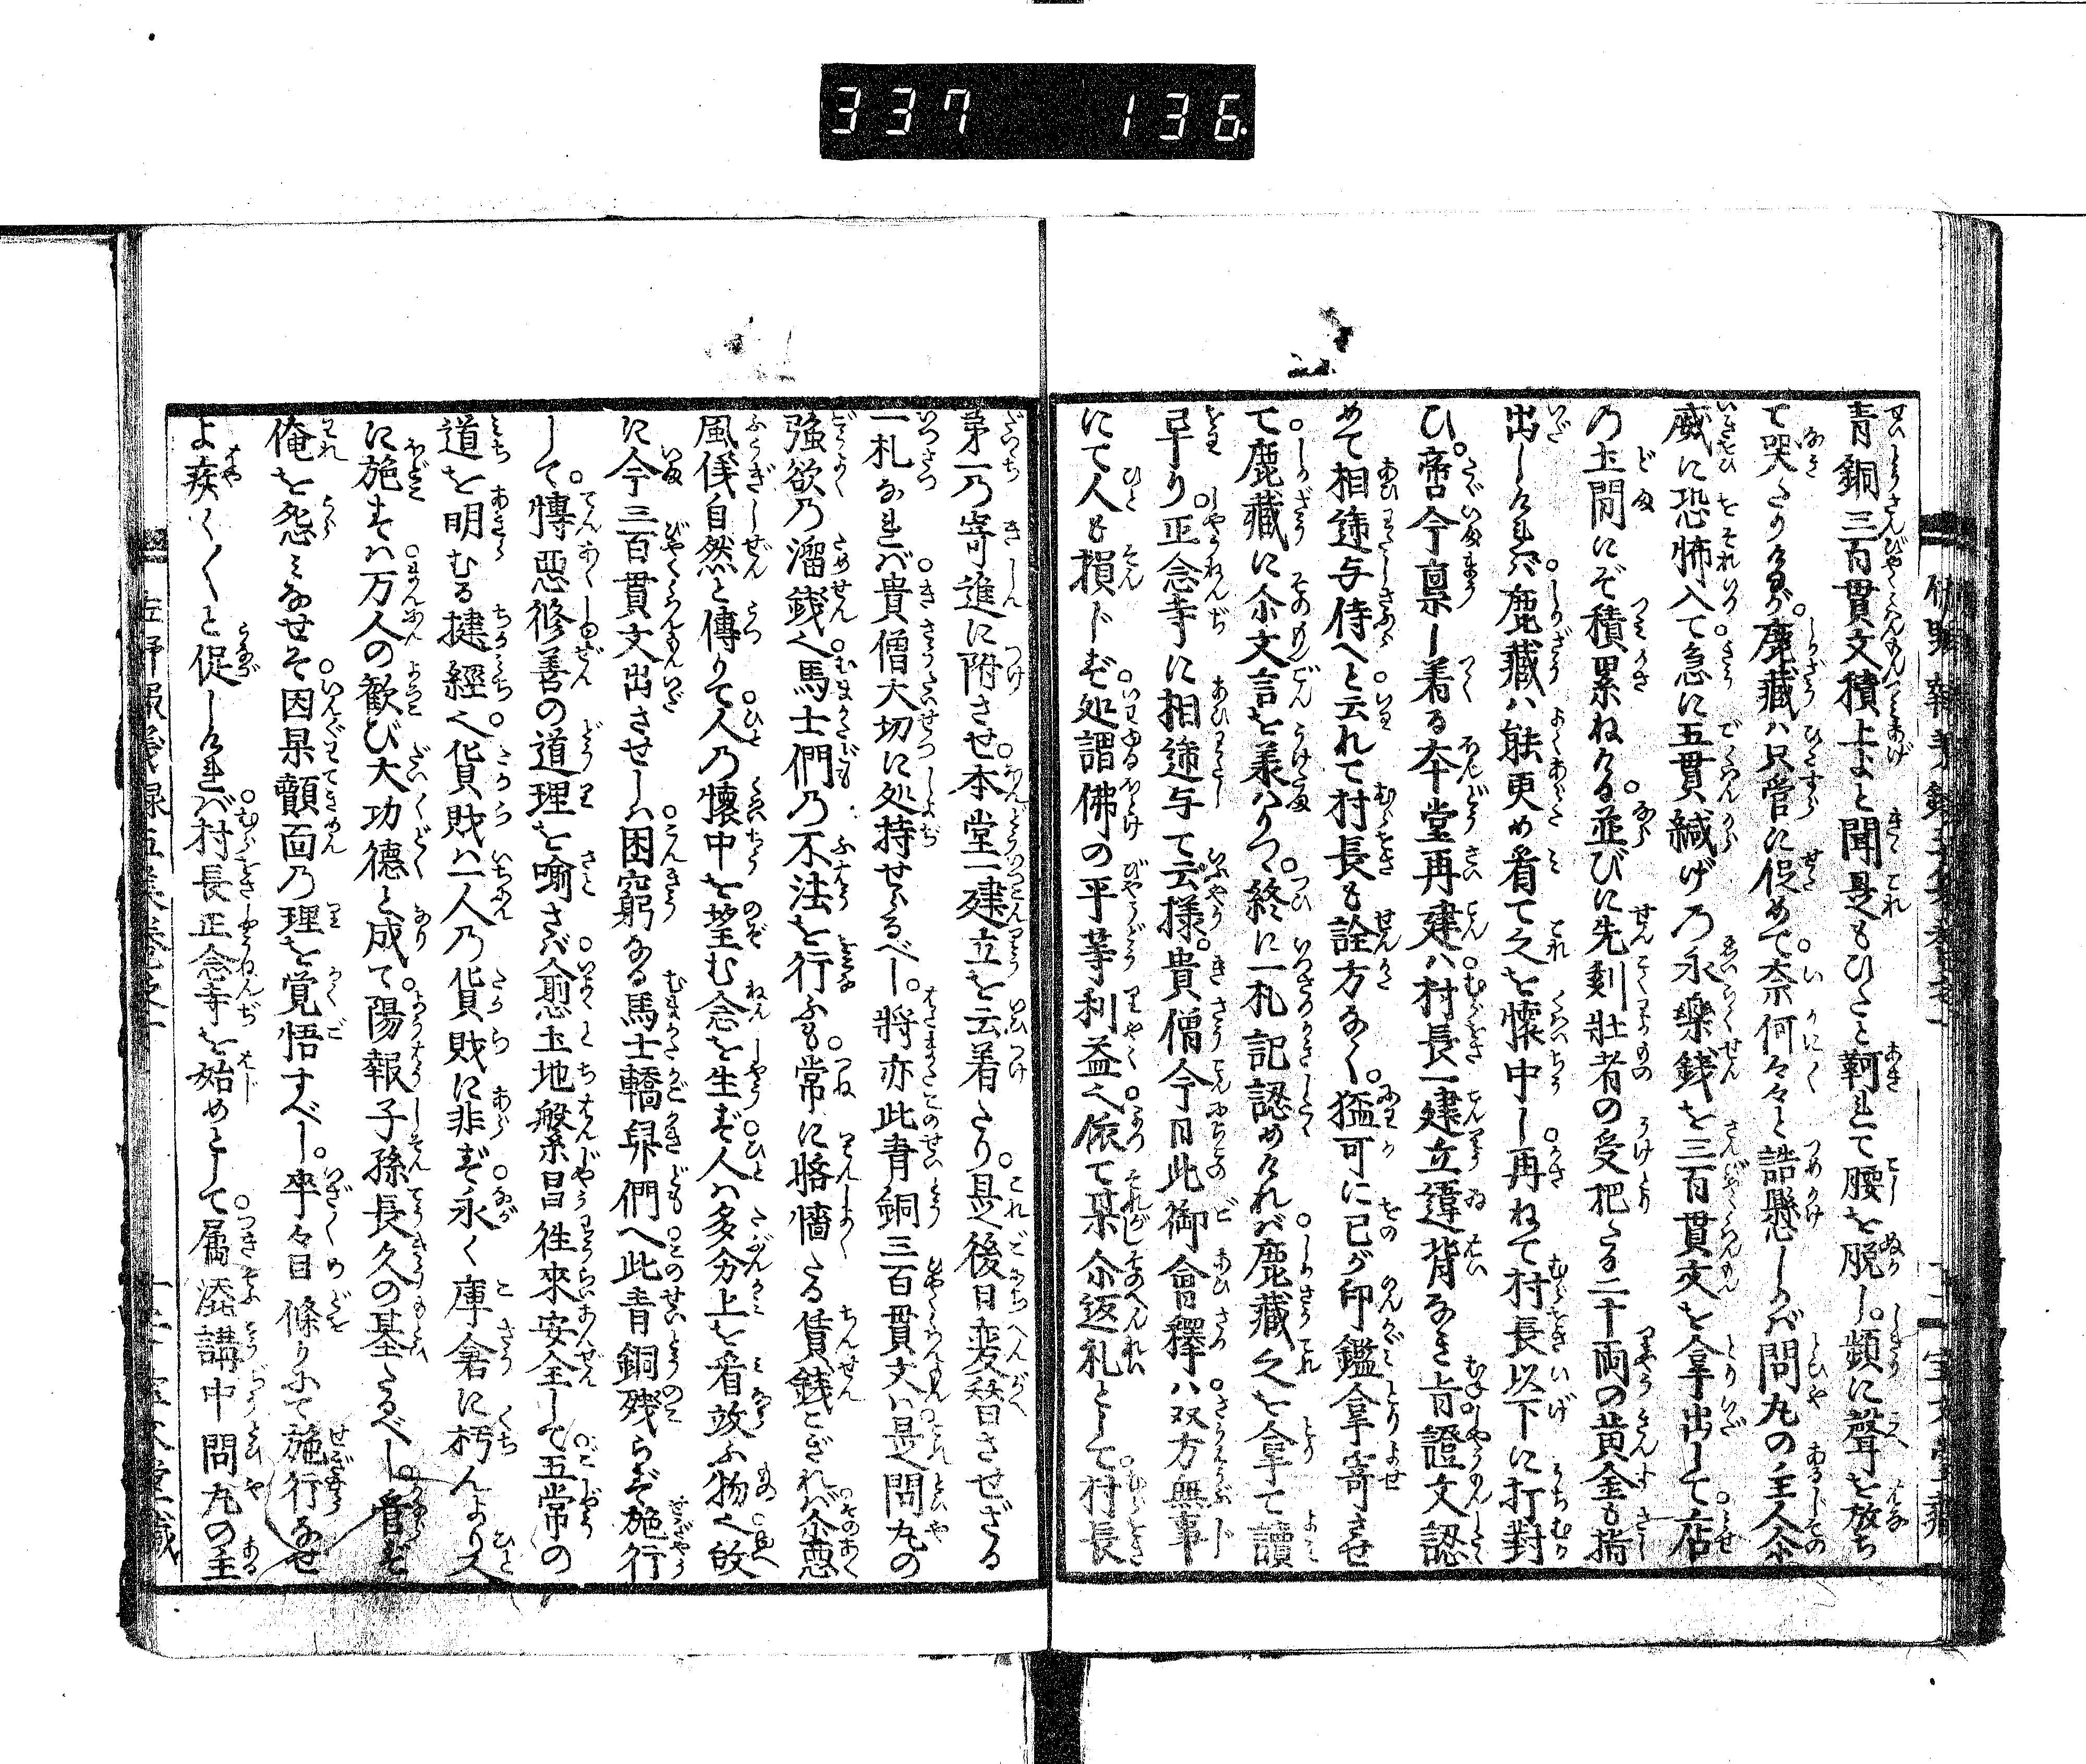 337 136
青銅三百貫文積上よと聞是もひたと軻れて腰を脱し。頻に聲を放ち
て哭たりけるが。鹿藏ハ只管に促めて。奈何々々と詰懸しかバ問丸の主人尒
威に恐怖入て。急に五貫緘げ乃永樂銭を三百貫文を拿出して。店
乃土間にぞ積累ねける。並びに先刻壮者の受把たる二十両の黄金も揣
出しけれバ。鹿藏ハ熊更め看て之を懐中し。再ねて村長以下に打對
ひ。啻今禀し着る本堂再建ハ。村長一建立違背なき旨證文認
めて相逓与侍へと云れて。村長も詮方なく。猛可に己が印鑑拿寄させ
て。鹿藏に尒文言を羕ハりつゝ。終に一札記認めけれバ。鹿藏之を拿て讀
早り。正念寺に相逓与て云様。貴僧今日此御會釋ハ。双方無事
にて人も損ドず。処謂佛の平等利益之。依て某尒返礼として。村長
第一乃寄進に附させ。本堂一建立を云着たり。是後日変替させざる
一札なれバ。貴僧大切に処持せらるべし。將亦此青銅三百貫文ハ。是問丸の
強欲乃溜銭之。馬士們乃不法を行ふも。常に悋嗇たる賃銭ござれバ。尒悪
風俴自然と傳りて。人乃懐中を望む念を生ず。人ハ多分上を看效ふ物之。故
に今三百貫文出させしハ。困窮なる馬士轎舁們へ。此青銅残らず施行
して。轉悪修善の道理を喻さバ。愈土地繁昌徃來安全して。五常の
道を明むる揵經之。貨財ハ一人乃貨財に非ず。永く庫倉に朽んより人
に施さバ。万人の歓び大功徳と成て。陽報子孫長久の基たるべし。肯ず
俺を怨ミなせそ。因果覿面乃理を覚悟すべし。卒々目條りにて施行なせ
よ疾く〱と促しけれバ。村長正念寺を始めとして。属泲講中問丸の主